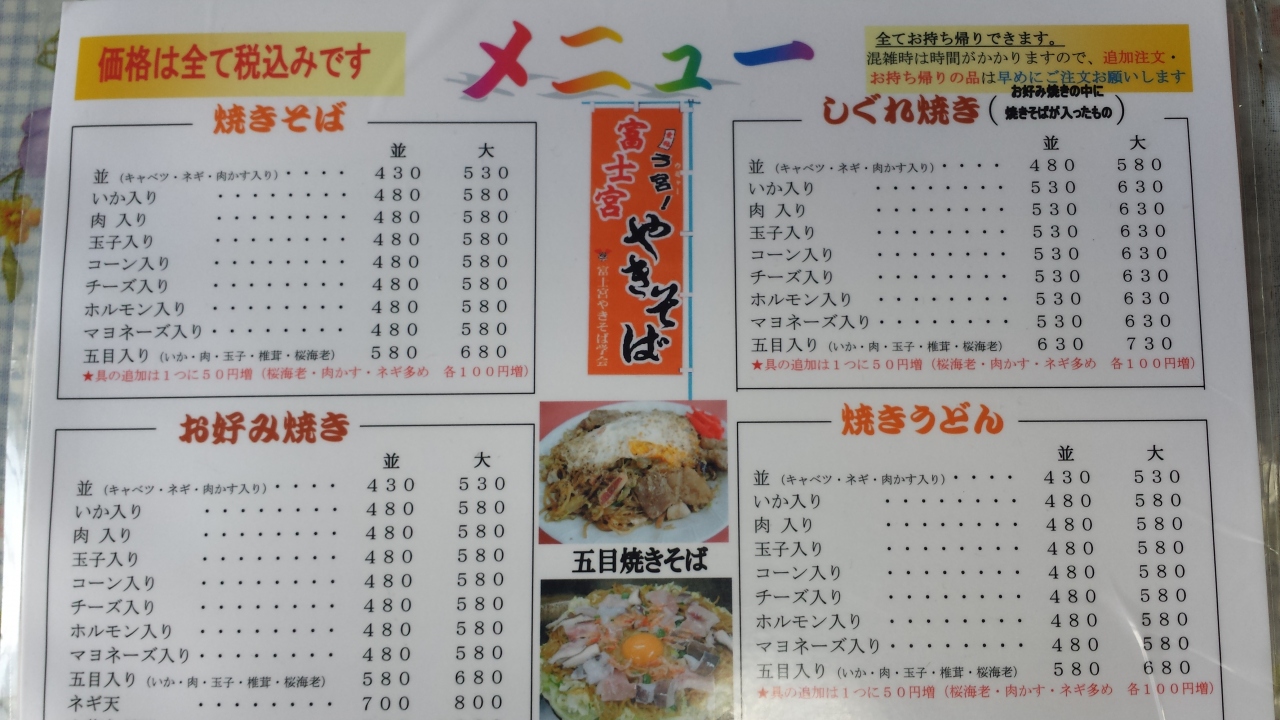 価格は全て税込みです
メニュー
全てお持ち帰りできます。
混雑時は時間がかかりますので、追加注文・
お持ち帰りの品は早めにご注文お願いします
焼きそば
並 大
並（キャベツ・ネギ・肉かす入り）・・・・ 430 530
いか入り ・・・・・・・・ 480 580
肉 入り ・・・・・・・・ 480 580
玉子入り ・・・・・・・・ 480 580
コーン入り ・・・・・・・・ 480 580
チーズ入り ・・・・・・・・ 480 580
ホルモン入り ・・・・・・・・ 480 580
マヨネーズ入り・・・・・・・・ 480 580
五目入り（いか・肉・玉子・椎茸・桜海老） 580 680
★具の追加は1つに50円増（桜海老・肉かす・ネギ多め 各100円増）
富士宮
う宮！
やきそば
しぐれ焼き（お好み焼きの中に
焼きそばが入ったもの）
並 大
並（キャベツ・ネギ・肉かす入り）・・・・ 480 580
いか入り ・・・・・・・・ 530 630
肉 入り ・・・・・・・・ 530 630
玉子入り ・・・・・・・・ 530 630
コーン入り ・・・・・・・・ 530 630
チーズ入り ・・・・・・・・ 530 630
ホルモン入り ・・・・・・・・ 530 630
マヨネーズ入り・・・・・・・・ 530 630
五目入り（いか・肉・玉子・椎茸・桜海老） 630 730
★具の追加は1つに50円増（桜海老・肉かす・ネギ多め 各100円増）
お好み焼き
並 大
並（キャベツ・ネギ・肉かす入り）・・・・ 430 530
いか入り ・・・・・・・・ 480 580
肉 入り ・・・・・・・・ 480 580
玉子入り ・・・・・・・・ 480 580
コーン入り ・・・・・・・・ 480 580
チーズ入り ・・・・・・・・ 480 580
ホルモン入り ・・・・・・・・ 480 580
マヨネーズ入り・・・・・・・・ 480 580
五目入り（いか・肉・玉子・椎茸・桜海老） 580 680
ネギ天 ・・・・・・・・ 700 800
五目焼きそば
焼きうどん
並 大
並（キャベツ・ネギ・肉かす入り）・・・・ 430 530
いか入り ・・・・・・・・ 480 580
肉 入り ・・・・・・・・ 480 580
玉子入り ・・・・・・・・ 480 580
コーン入り ・・・・・・・・ 480 580
チーズ入り ・・・・・・・・ 480 580
ホルモン入り ・・・・・・・・ 480 580
マヨネーズ入り・・・・・・・・ 480 580
五目入り（いか・肉・玉子・椎茸・桜海老） 580 680
★具の追加は1つに50円増（桜海老・肉かす・ネギ多め 各100円増）